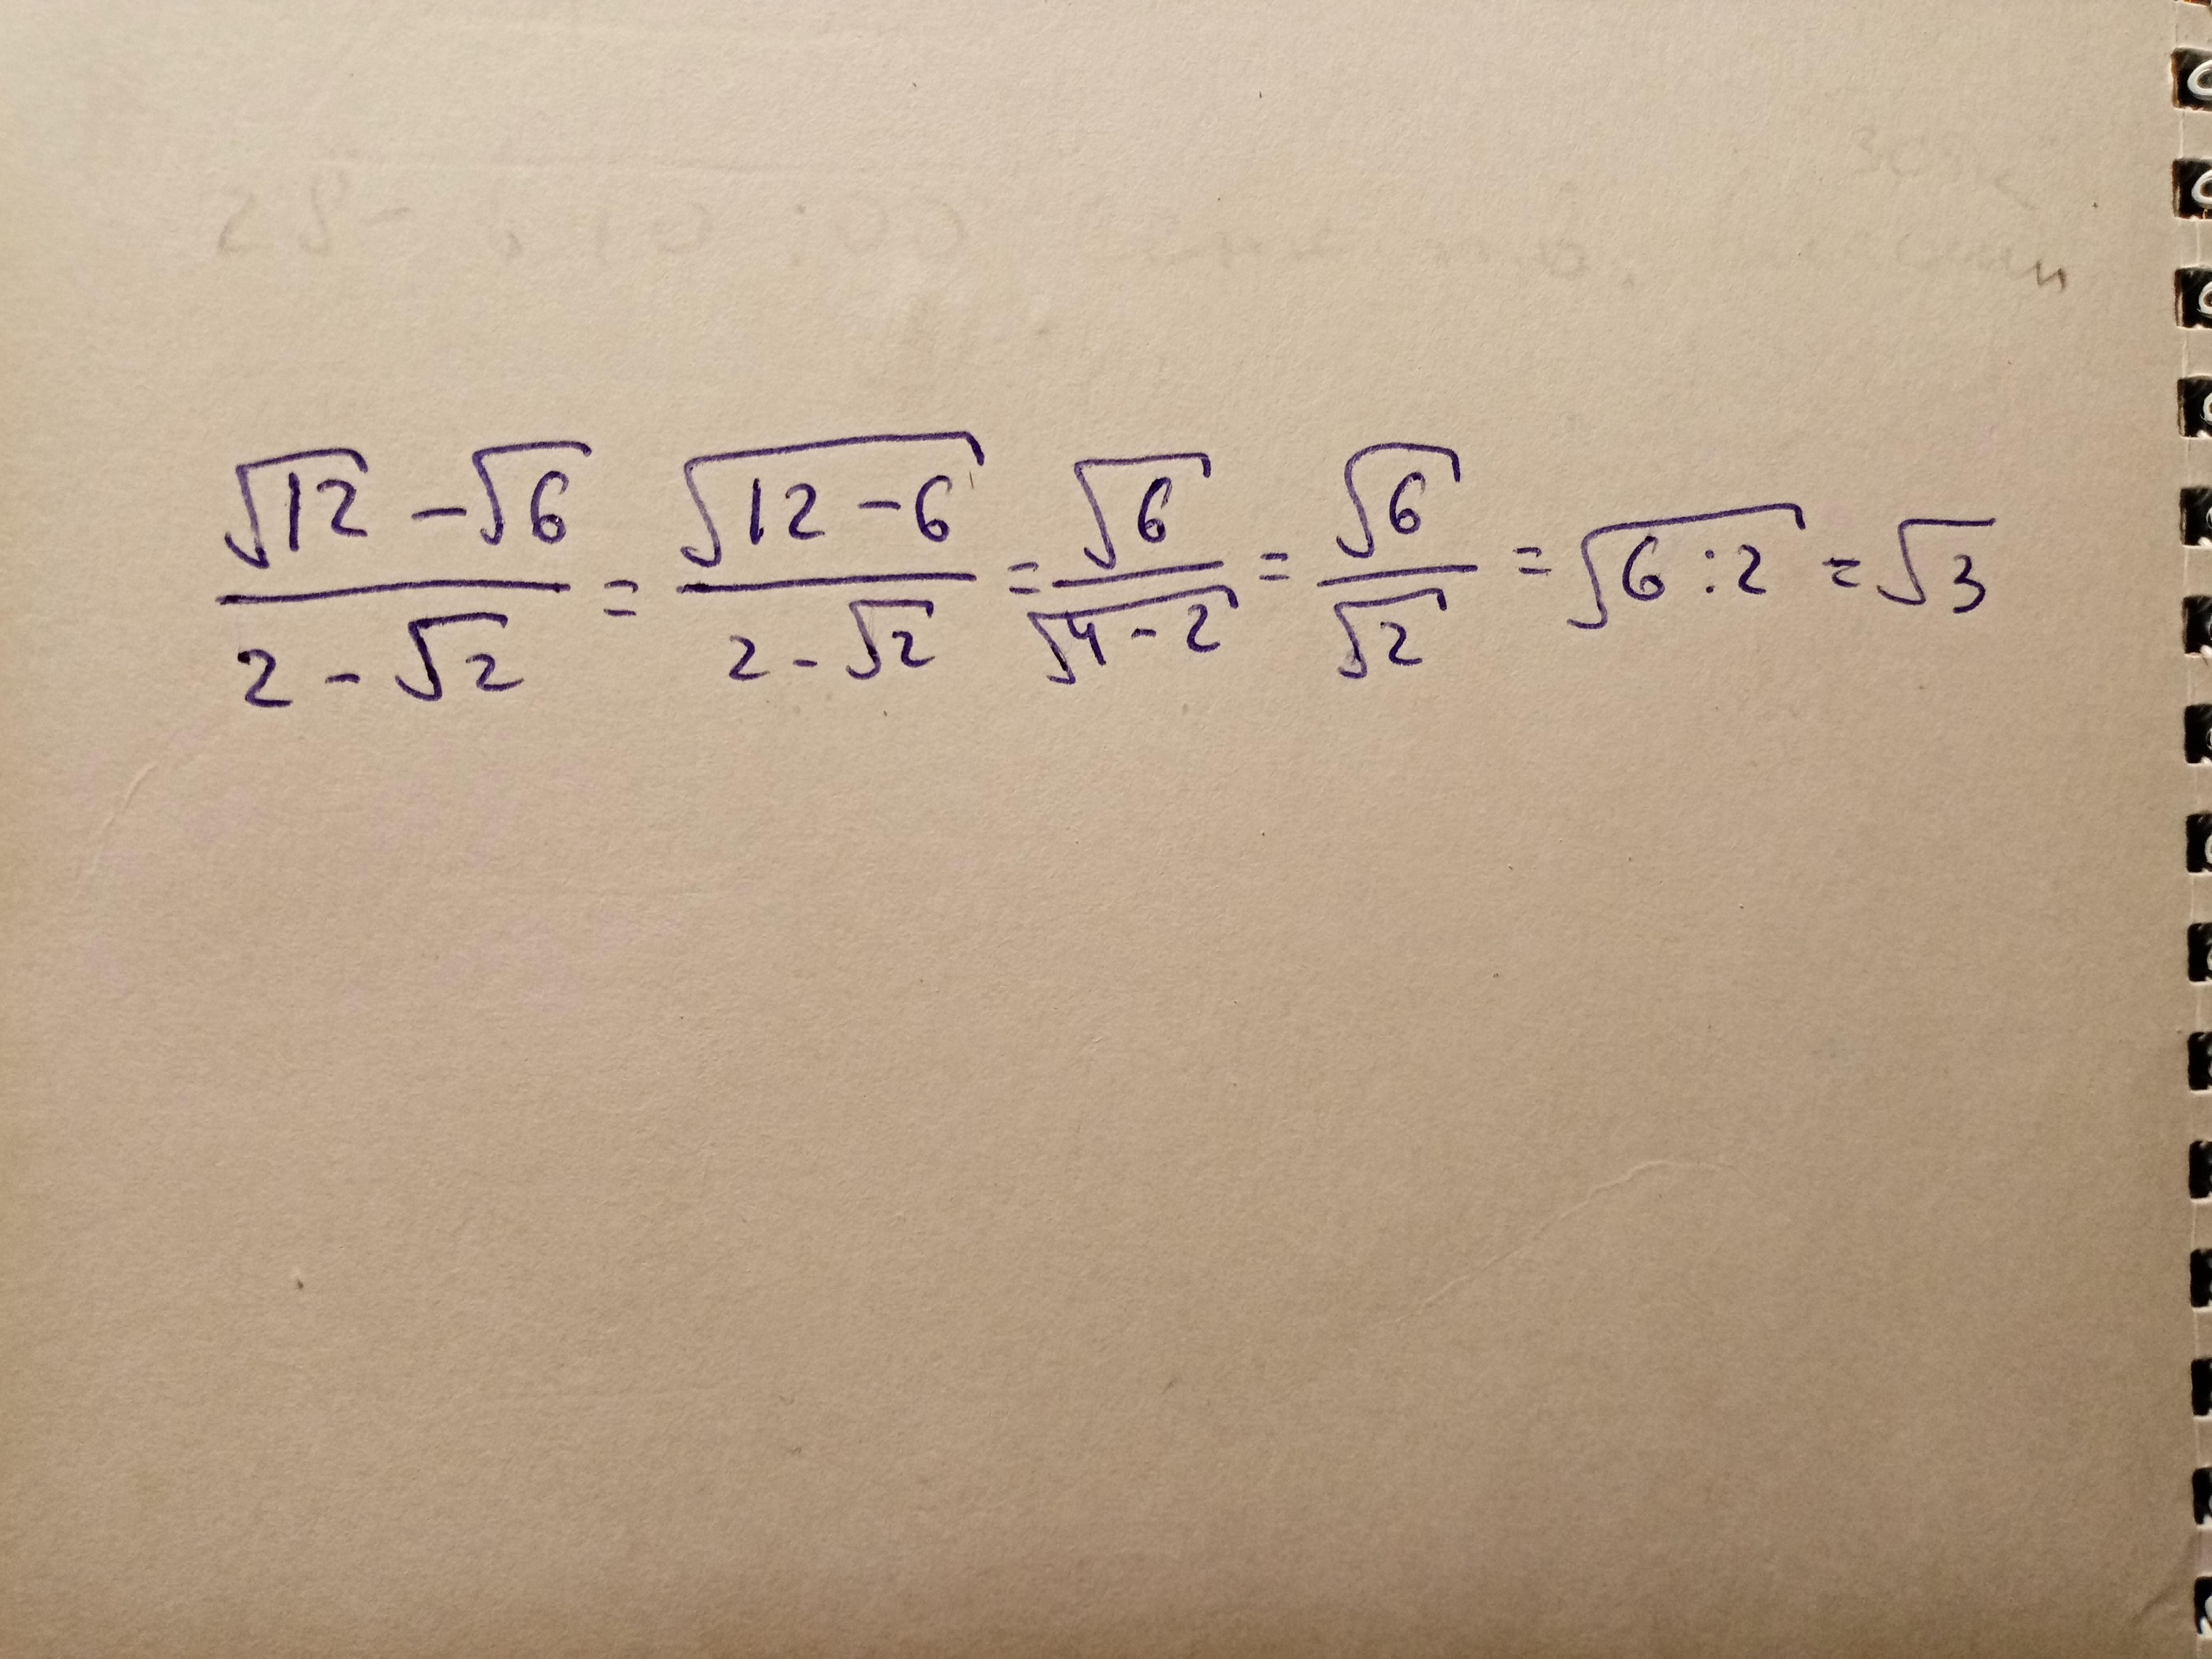 (√12 - √6)/(2 - √2) = √(12 - 6)/(2 - √2) = √6/√(4 - 2) = √6/√2 = √(6 : 2) = √3